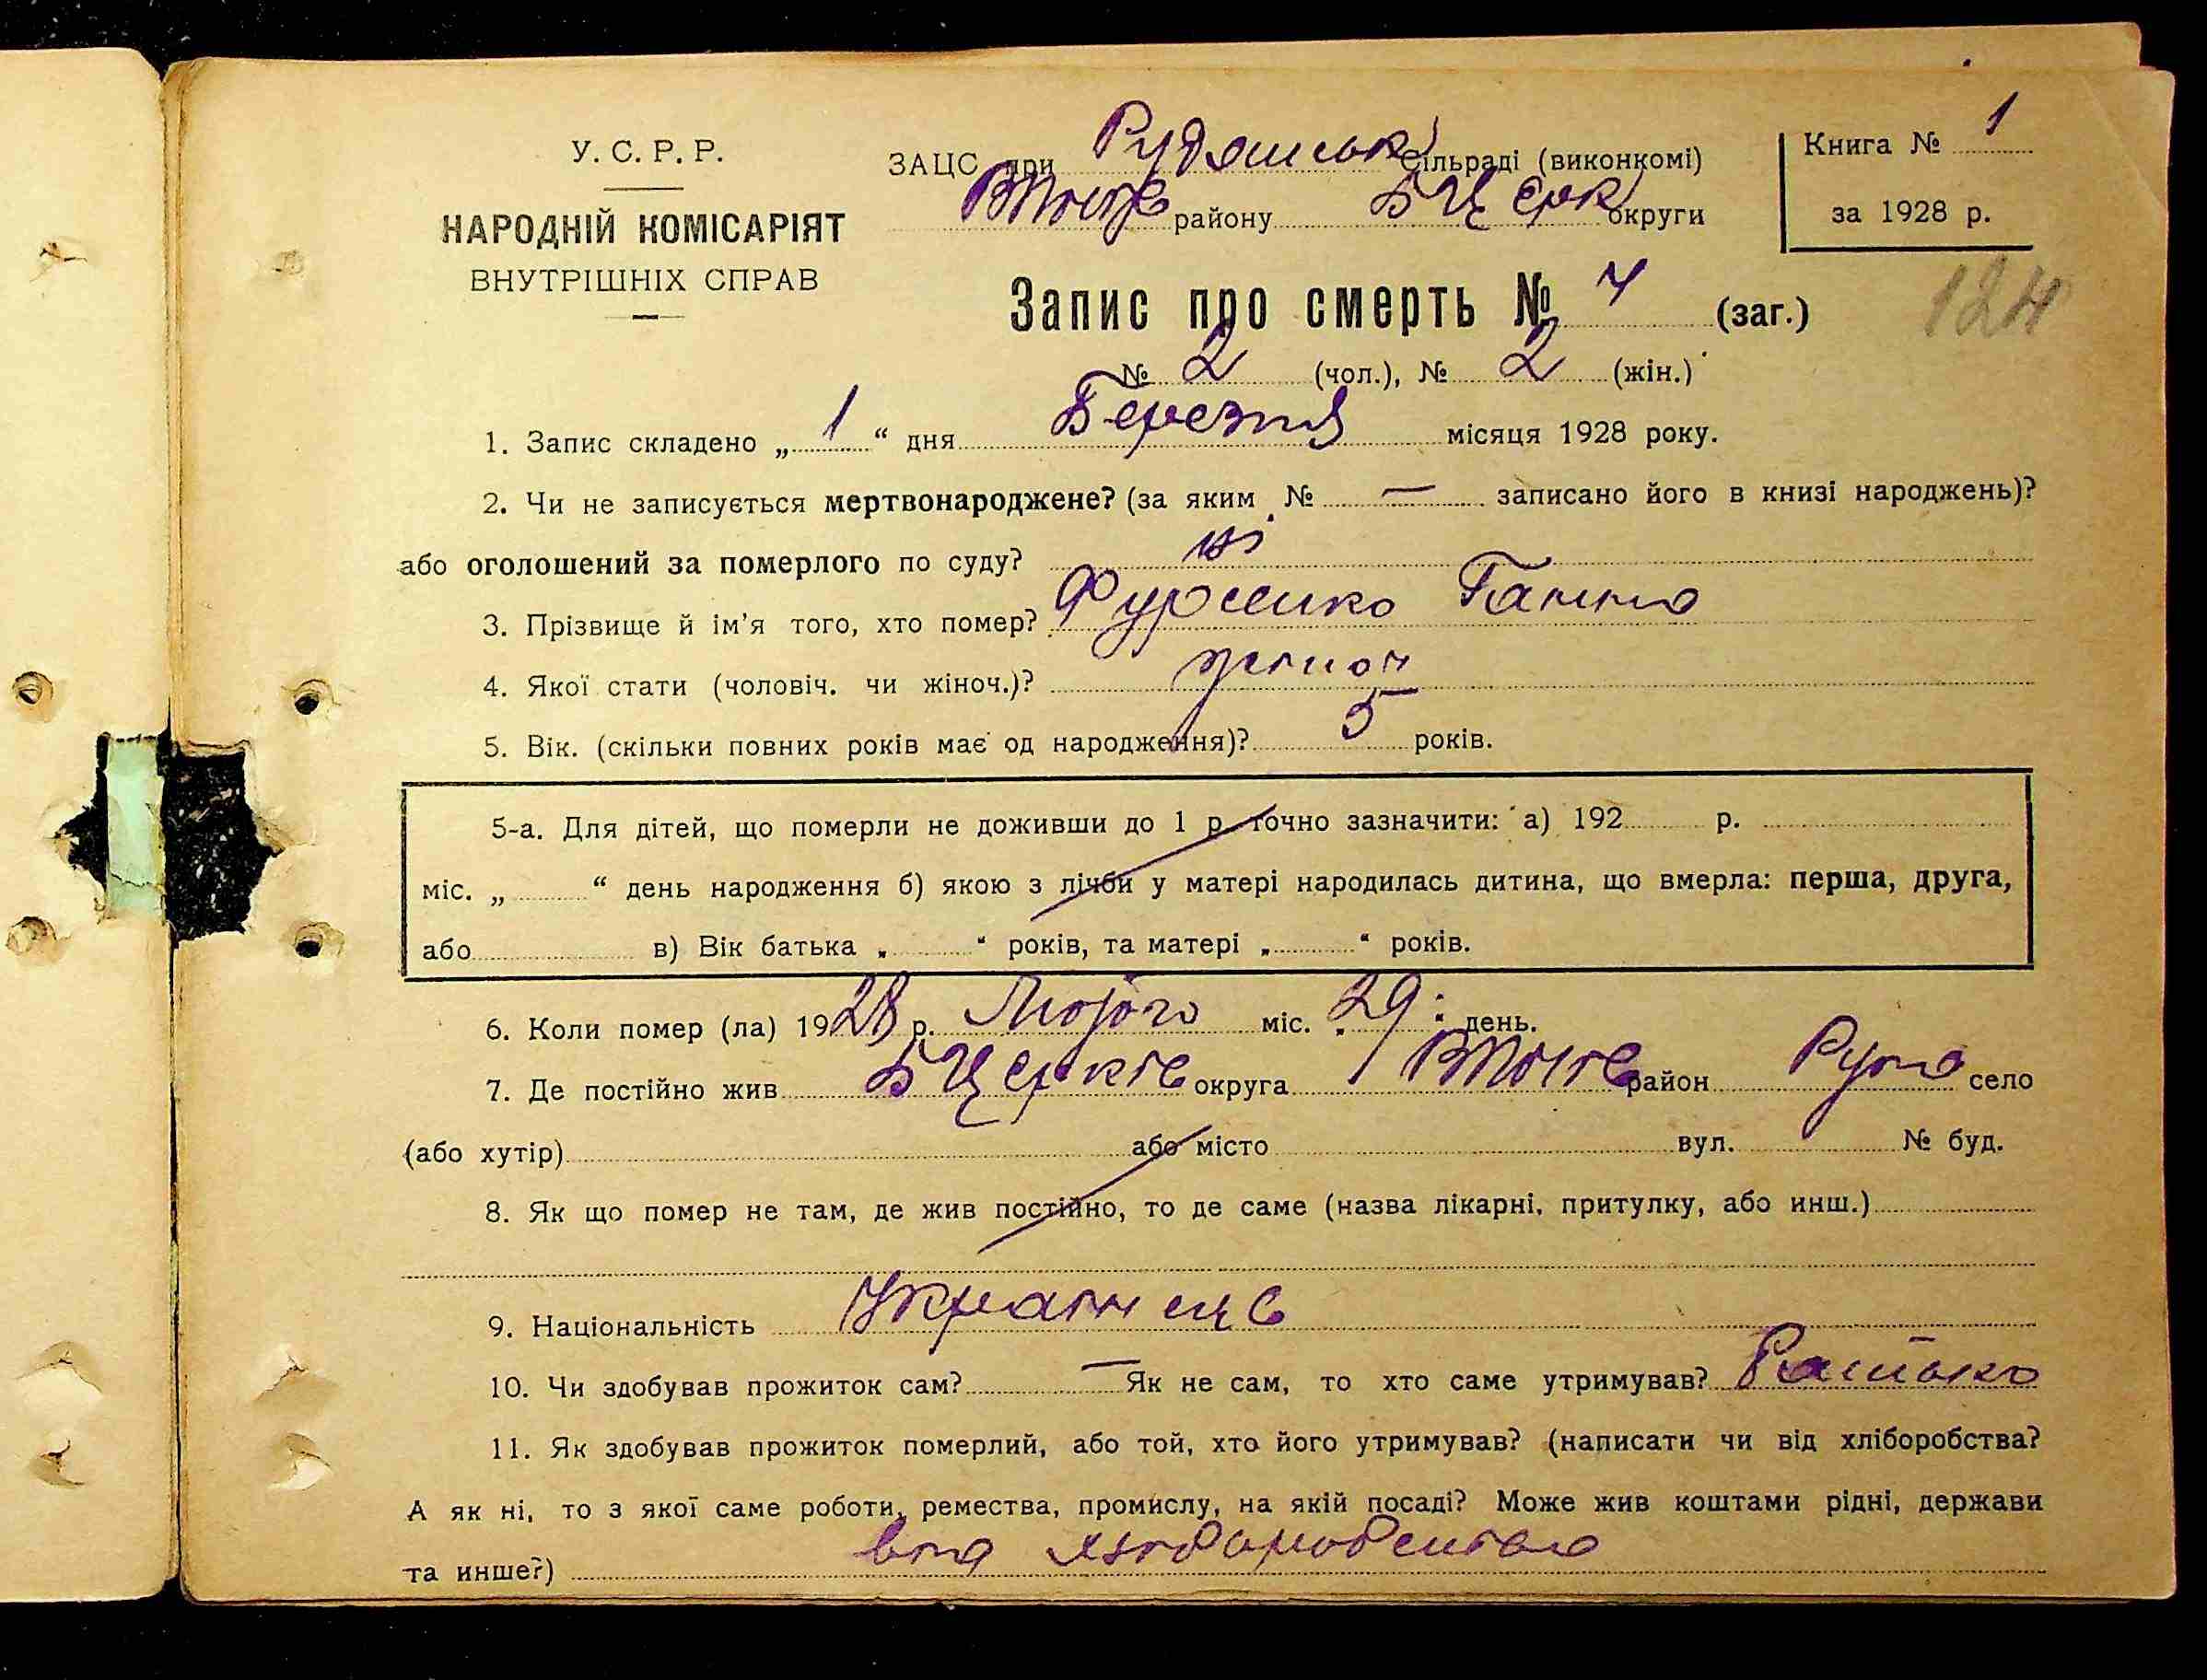 У. С. Р. Р.
НАРОДНІЙ КОМІСАРІЯТ
ВНУТРІШНІХ СПРАВ
ЗАЦС при Рудянськ сільраді (виконкомі)
району БЦерк округи
Книга № 1
за 1928 р.
Запис про смерть № 4 (заг.)
124
№ 2 (чол.), № 2 (жін.)
1. Запис складено „ 1 “ дня Березня місяця 1928 року.
2. Чи не записується мертвонароджене? (за яким № — записано його в книзі народжень)?
або оголошений за померлого по суду? ні
3. Прізвище й ім’я того, хто помер? Ганна
4. Якої стати (чоловіч. чи жіноч.)? жіноч
5. Вік. (скільки повних років має од народження)? 5 років.
5-а. Для дітей, що померли не доживши до 1 р. точно зазначити: а) 192 р.
міс. „ “ день народження б) якою з лічби у матері народилась дитина, що вмерла: перша, друга,
або в) Вік батька „ “ років, та матері „ “ років.
6. Коли помер (ла) 1928 р. Лютого міс. „ 29 “ день.
7. Де постійно жив БЦерків округа район Руда село
(або хутір) або місто вул. № буд.
8. Як що помер не там, де жив постійно, то де саме (назва лікарні, притулку, або инш.)
9. Національність
10. Чи здобував прожиток сам? — Як не сам, то хто саме утримував? Батько
11. Як здобував прожиток померлий, або той, хто його утримував? (написати чи від хліборобства?
А як ні, то з якої саме роботи, ремества, промислу, на якій посаді? Може жив коштами рідні, держави
та инше?) від хліборобства